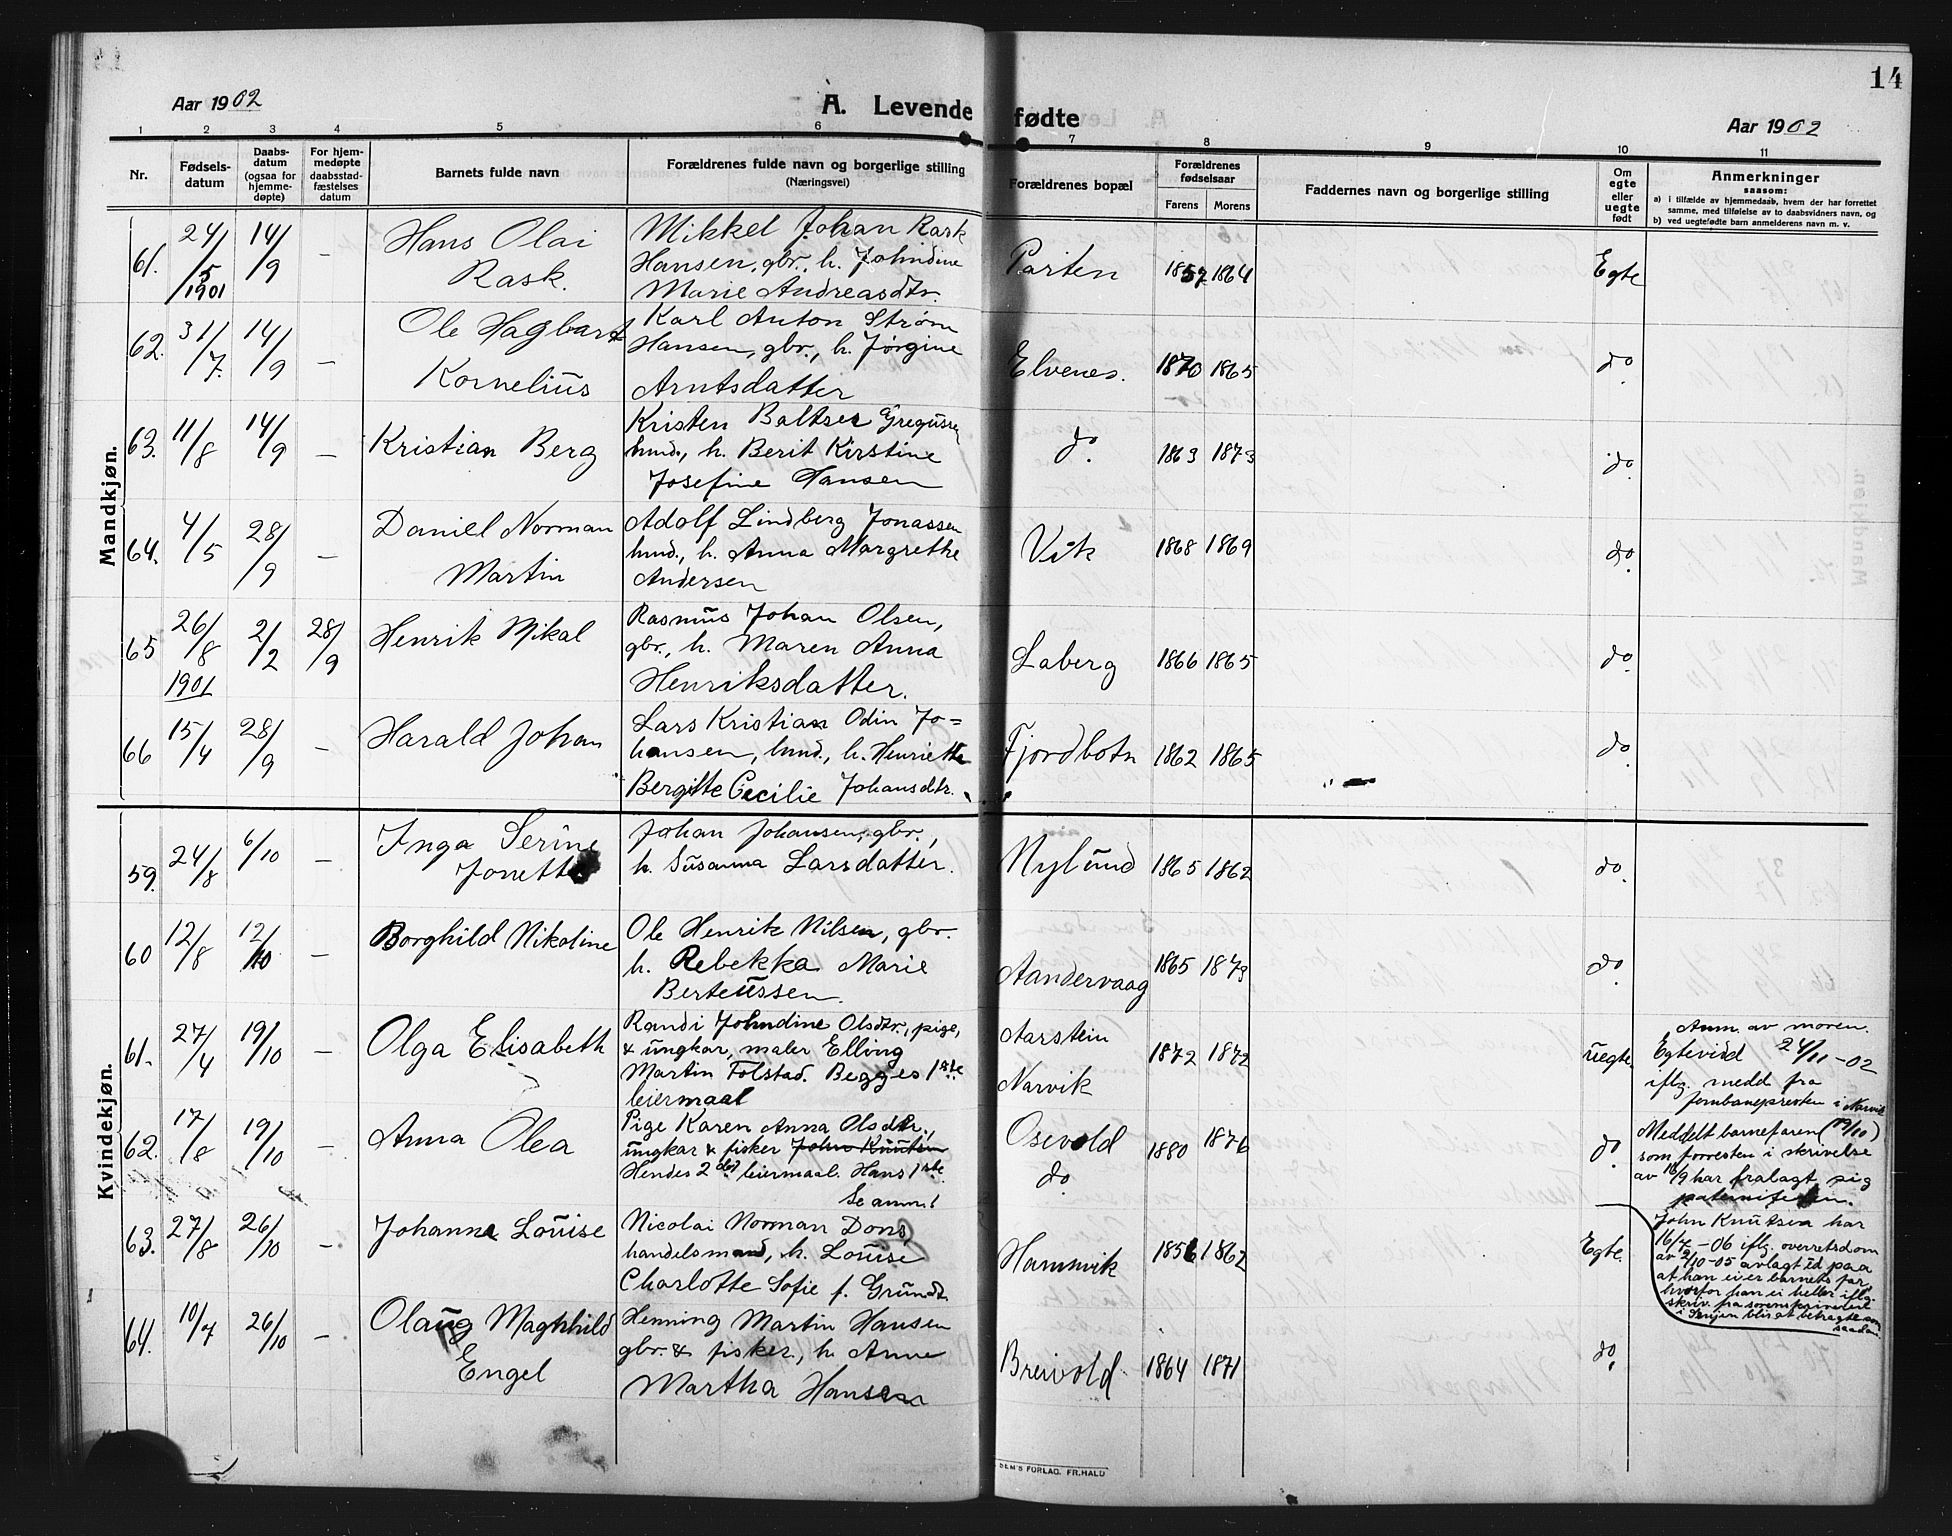 14
Aar 1902
A. Levende fødte
Aar 1902
1 2 3 4 5 6 7 8 9 10 11
Nr.
Fødsels-
datum
Daabs-
datum
(ogsaa for
hjemme-
døpte)
For hjem-
medøpte
daabsstad-
fæstelses
datum
Barnets fulde navn
Forældrenes fulde navn og borgerlige stilling
(Næringsvei)
Forældrenes bopæl
Forældrenes
fødselsaar
Farens Morens
Faddernes navn og borgerlige stilling
Om
egte
eller
uegte
født
Anmerkninger
saasom:
a) i tilfælde av hjemmedaab, hvem der har forrettet
samme, med tilføielse av to daabsvidners navn, og
b) ved uegtefødte barn anmelderens navn m. v.
Mandkjøn.
61. 24/5 1901 14/9 –
Hans Olai
Rask.
Mikkel Johan Rask
Hansen, gbr., h. Johndine
Marie Andreasdtr.
Parten 1857 1864 Egte
62. 31/7. 14/9 –
Ole Hagbart
Kornelius
Karl Anton Strøm
Hansen, gbr., h. Jørgine
Arntsdatter
Elvenes. 1870 1865 do.
63. 11/8 14/9 –
Kristian Berg
Kristen Baltser Gregusen
hmd., h. Berit Kirstine
Josefine Hansen
do. 1863 1873 do
64. 4/5 28/9 –
Daniel Norman
Martin
Adolf Lindberg Jonassen
hmd., h. Anna Margrethe
Andersen
Vik 1868 1869 do.
65 26/8 1901 2/2 28/9
Henrik Mikal
Rasmus Johan Olsen,
gbr., h. Maren Anna
Henriksdatter.
Laberg 1866 1865 do.
66 15/4 28/9 –
Harald Johan
Lars Kristian Odin Jo=
hansen, hmd., h. Henriette
Bergitte Cecilie Johansdtr.
Fjordbotn 1862 1865 do.
Kvindekjøn.
59. 24/8 6/10 –
Inga Serine
Jonette
Johan Johansen, gbr.,
h. Susanna Larsdatter.
Nylund 1865 1862 do.
60 12/8 12/10 –
Borghild Nikoline
Ole Henrik Nilsen, gbr.
h. Rebekka Marie
Berteussen.
Aandervaag 1865 1873 do.
61. 27/4 19/10 –
Olga Elisabeth
Randi Johndine Olsdtr., pige,
& ungkar, maler Elling
Martin Folstad. Begges 1ste
leiermaal
Aarstein
Narvik
1872 1872 uegte.
Anm. av moren.
Egtevied 24/11 – 02
iflg. medd fra
jernbanepresten i Narvik
62. 17/8 19/10 –
Anna Olea
Pige Karen Anna Olsdtr.,
ungkar & fisker John Knutsen
Hendes 2det leiermaal. Hans 1ste
Se anm!
Osevold
do.
1880 1876 do.
Meddelt barnefaren (19/10)
som forresten i skrivelse
av 16/9 har fralagt sig
paterniteten.
John Knutsen har
16/7 – 06 iflg. overretsdom
av 2/10 – 05 avlagt ed paa
at han ei er barnets far,
hvorfor han ei heller iflg.
skriv. fra sorenskriveren
i Senjen blir at betragte som
saadan.
63. 27/8 26/10 –
Johanna Louise
Nicolai Norman Dons,
handelsmand, h. Louise
Charlotte Sofie f. Grundt.
Hamnvik 1856 1862 Egte.
64. 10/7 26/10 –
Olaug Maghhild
Engel
Henning Martin Hansen
gbr. & fisker, h. Anne
Martha Hansen
Breivold 1864 1871 do.
SEM'S FORLAG. FR.HALD